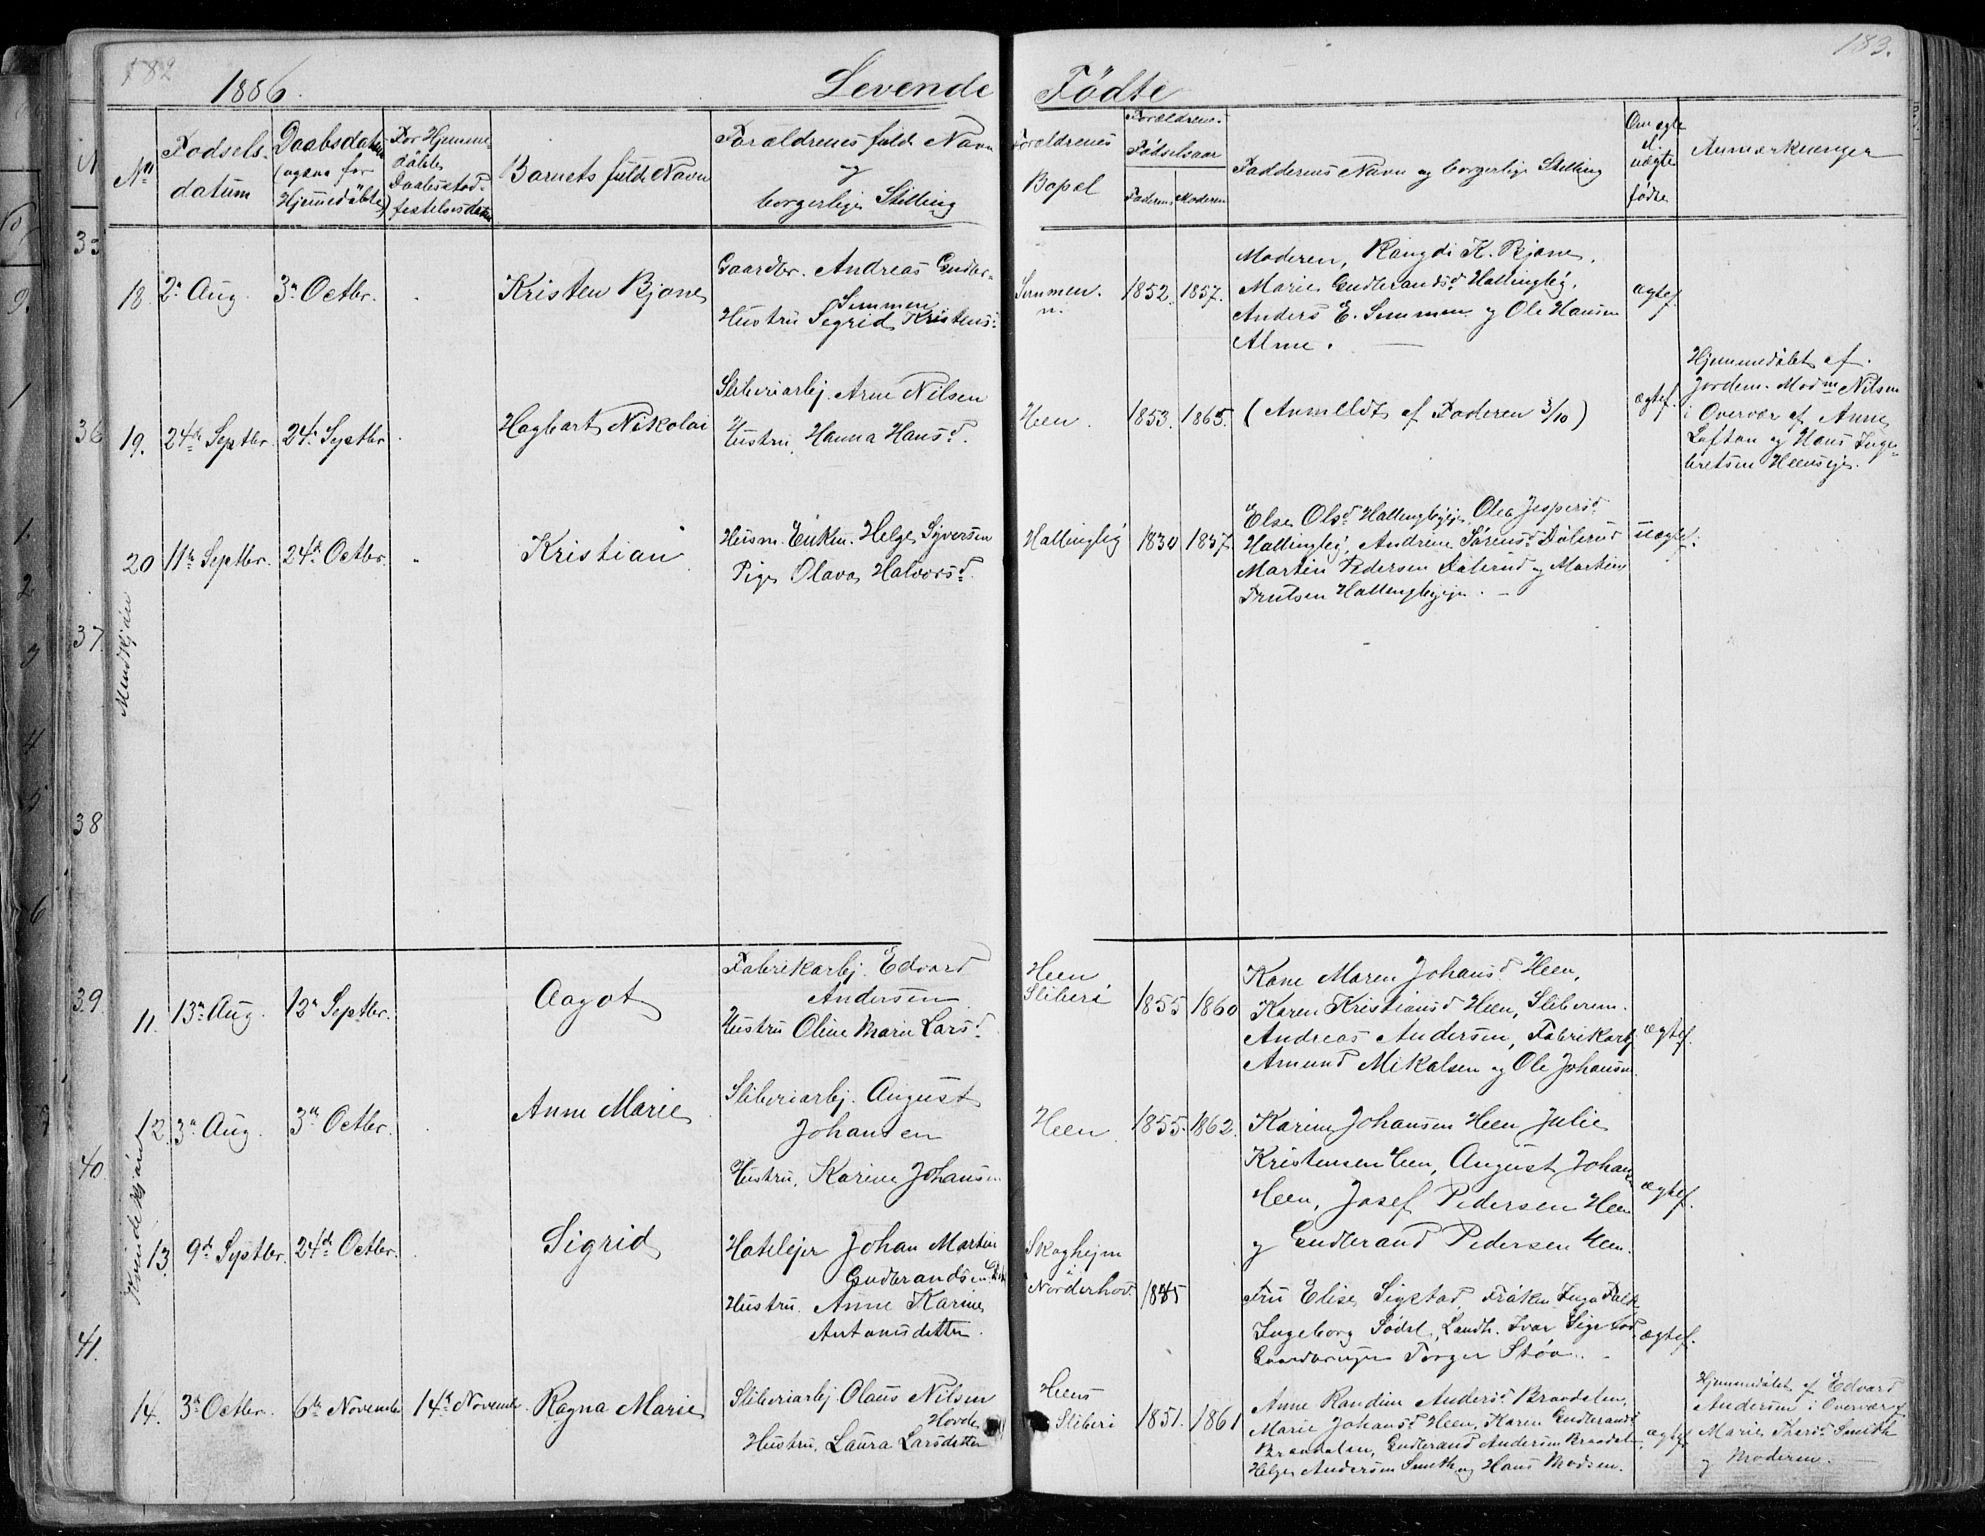 182
183.
1886.
Levende Fødte
Nº
Fødsels-
datum
Daabsdatum
(ogsaa for
Hjemmedøbte)
For Hjemme-
døbte
Daabsstad-
festelsesdatum
Barnets fulde Navn
Forældrenes fulde Navn
og
borgerlige Stilling
Forældrenes
Bopæl
Forældrenes
Fødselsaar
Faderens
Moderens
Faddernes Navn og borgerlige Stilling
Om ægte
el.
uægte
fødte
Anmærkninger
Mandkjøn
18. 2n Aug. 3n Octbr. Kristen Bjone
Gaardbr. Andreas Gudbr.
Semmen
Hustru Sigrid Kristens.
Semmen. 1852. 1857.
Moderen, Rangdi K. Bjone,
Marie Gudbrandsd. Hallingby,
Anders E. Semmen og Ole Hansen
Alme.
ægtef.
19. 24de Septbr. 24. Septbr. Hagbart Nikolai
Sliberiarbj. Arne Nilsen
Hustru, Hanna Hansd.
Heen. 1853. 1865. (Anmeldt af Faderen 3/10)
ægtef.
Hjemmedøbt af
Jordem. Madm Nilsen
i Overvær af Anne
Loftan og Hans Inge-
bretsen Heenseje.
20 11te Septbr. 24de Octbr. Kristian
Husm. Enkem. Helge Syversen
Pige Olava Halvorsd.
Hallingby 1830 1857
Else Olsd. Hallingbyeje, Olea Jespersd.
Hallingby, Andrine Sørensd. Dølerud
Martin Pedersen Dølerud og Martin
Trulsen Hallingbyeje.
uægte.
Kvindekjøn
11. 13n Aug. 12te Septbr. Aagot
Fabrikarbj. Edvard
Andersen
Hustru Oline Marie Larsd.
Heen
Sliberi 1855 1860
Kone Maren Johansd. Heen,
Karen Kristiansd. Heen, Sliberem.
Andreas Andersen, Fabrikarbj.
Amund Mikalsen og Ole Johansen.
ægtef.
12. 3n Aug. 3n Octbr. Anne Marie
Sliberiarbj. August
Johansen
Hustru, Karine Johansen
Heen 1855. 1862.
Karine Johansen Heen Julie
Kristensen Heen, August Johan
Heen, Josef Pedersen Heen
og Gudbrand Pedersen Heen.
ægtef.
13. 9de Septbr. 24de Octbr. Sigrid
Hotelejer Johan Martin
Gudbrandsen
Hustru. Anne Karine
Antonsdatter.
Skoghejm
i
Norderhov. 1845
Fru Elise Sigstad, Frøken Inga Falk
Ingeborg Sødel, Landh. Ivar Sigstad
Gaardbruger Torger Støv.
ægtef.
14. 3n Octbr. 6te Novembr 14de Novembr. Ragna Marie
Sliberiarbej. Olaus Nilsen
Hovde
Hustru, Laura Larsdatter
Heens
Sliberi 1851. 1861
Anne Randine Andersd. Braadalen,
Marie Johansd. Heen, Karen Gudbrandsd.
Braadalen, Gudbrand Andersen Braadalen
Helge Andersen Smith og Hans Madsen.
ægtef.
Hjemmedøbt af Edvard
Andersen i Overvær af
Marie Thersd. Smith
og Moderen.
33
36
37
38
39
40
41.